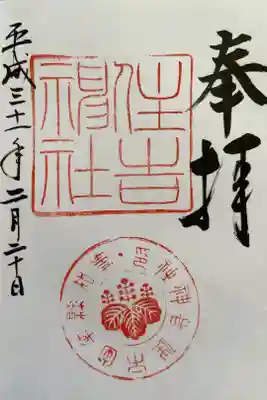 奉拝
住吉
神社
平成三十一年二月二十日